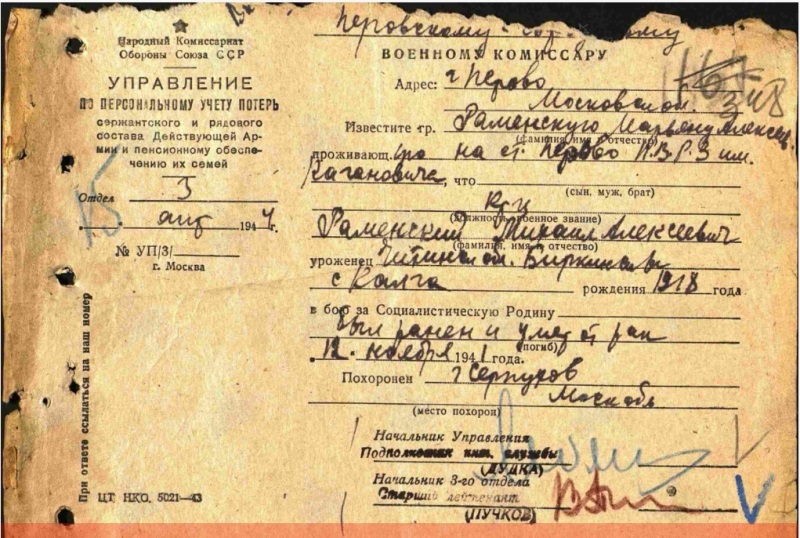 Народный Комиссариат
Обороны Союза ССР
УПРАВЛЕНИЕ
ПО ПЕРСОНАЛЬНОМУ УЧЕТУ ПОТЕРЬ
сержантского и рядового
состава Действующей Ар-
мии и пенсионному обеспе-
чению их семей
Отдел 3
авг 1944 г.
№ УП/3/
г. Москва
15
При ответе ссылаться на наш номер
ЦТ НКО. 5021—43
Перовскому
ВОЕННОМУ КОМИССАРУ
Адрес: г Перово
Московской
Известите гр. Раменскую
(фамилия, имя и отчество)
проживающ. на ст. Перово П.В.Р.З им.
Кагановича, что
(сын, муж, брат)
(должность, военное звание)
Раменский Михаил Алексеевич
(фамилия, имя и отчество)
уроженец Читинск
с Калга рождения 1918 года
в бою за Социалистическую Родину
был ранен и умер от ран
(погиб)
12. ноября 1941 года.
Похоронен г Серпухов
(место похорон)
Начальник Управления
Подполковник инт. службы
(ДУДКА)
Начальник 3-го отдела
Старший лейтенант
(ПУЧКОВ)